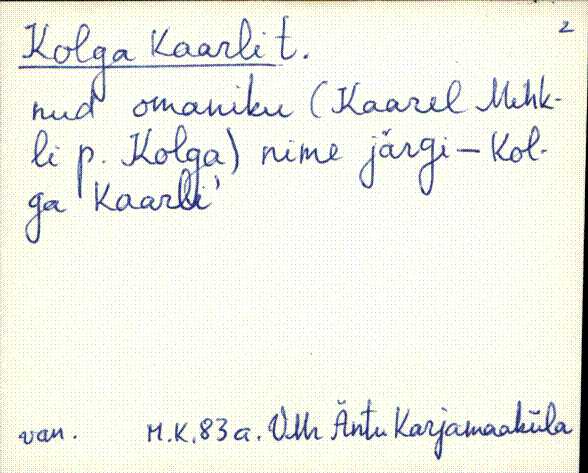 2
Kolga Kaarli t.
nud omaniku (Kaarel Mihk-
li p. Kolga) nime järgi – Kol-
ga Kaarli'
van. M.K. 83 a. VMr Äntu Karjamaaküla